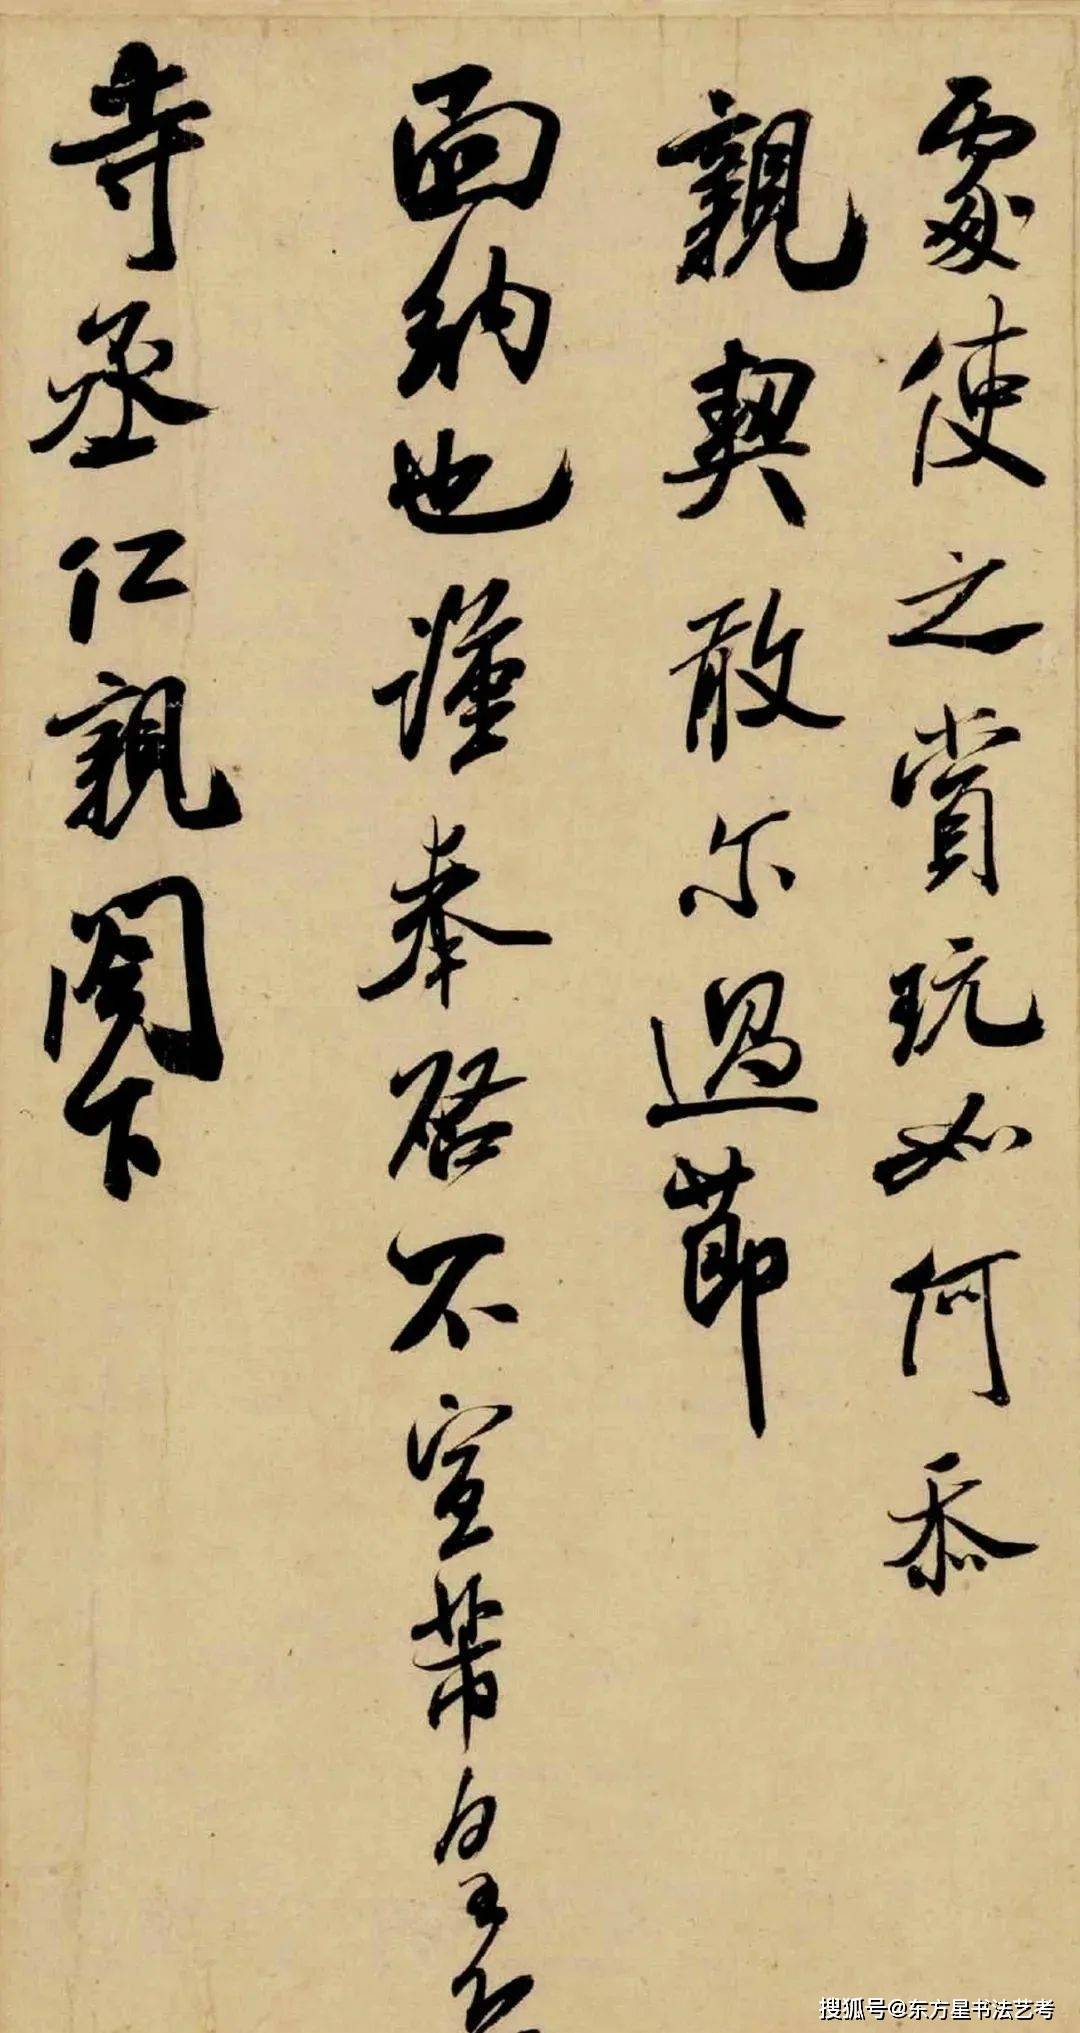 處使之賞玩如何忝
親契敢尔過節
面納也謹奉啓不宣芾皇恐
寺丞仁親閣下
搜狐号@东方星书法艺考